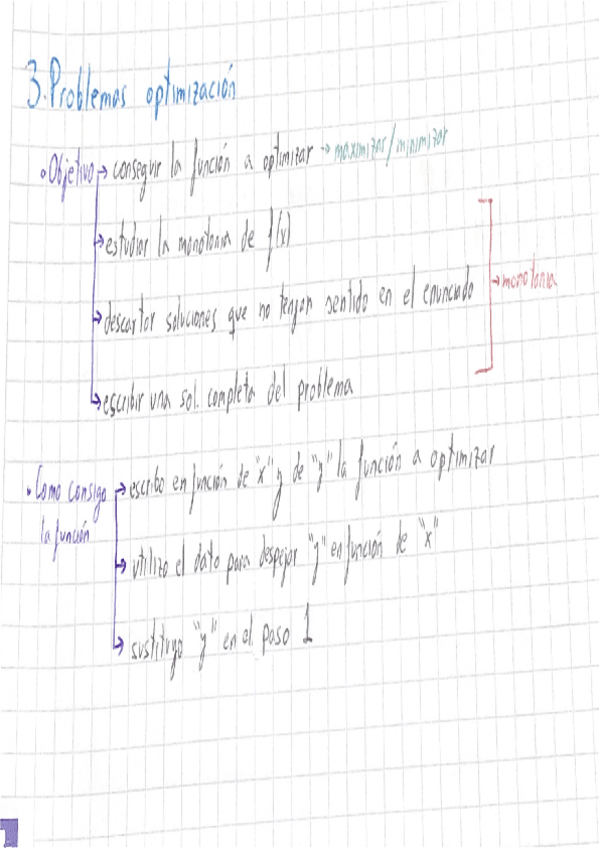 3. Problemas optimización
• Objetivo → conseguir la función a optimizar → maximizar/minimizar
→ estudiar la monotonia de f(x)
→ descartar soluciones que no tengan sentido en el enunciado → monotonia
→ escribir una sol. completa del problema
• Como consigo → escribo en función de "x" y de "y" la función a optimizar
la función
→ utilizo el dato para despejar "y" en función de "x"
→ sustituyo "y" en el paso 1